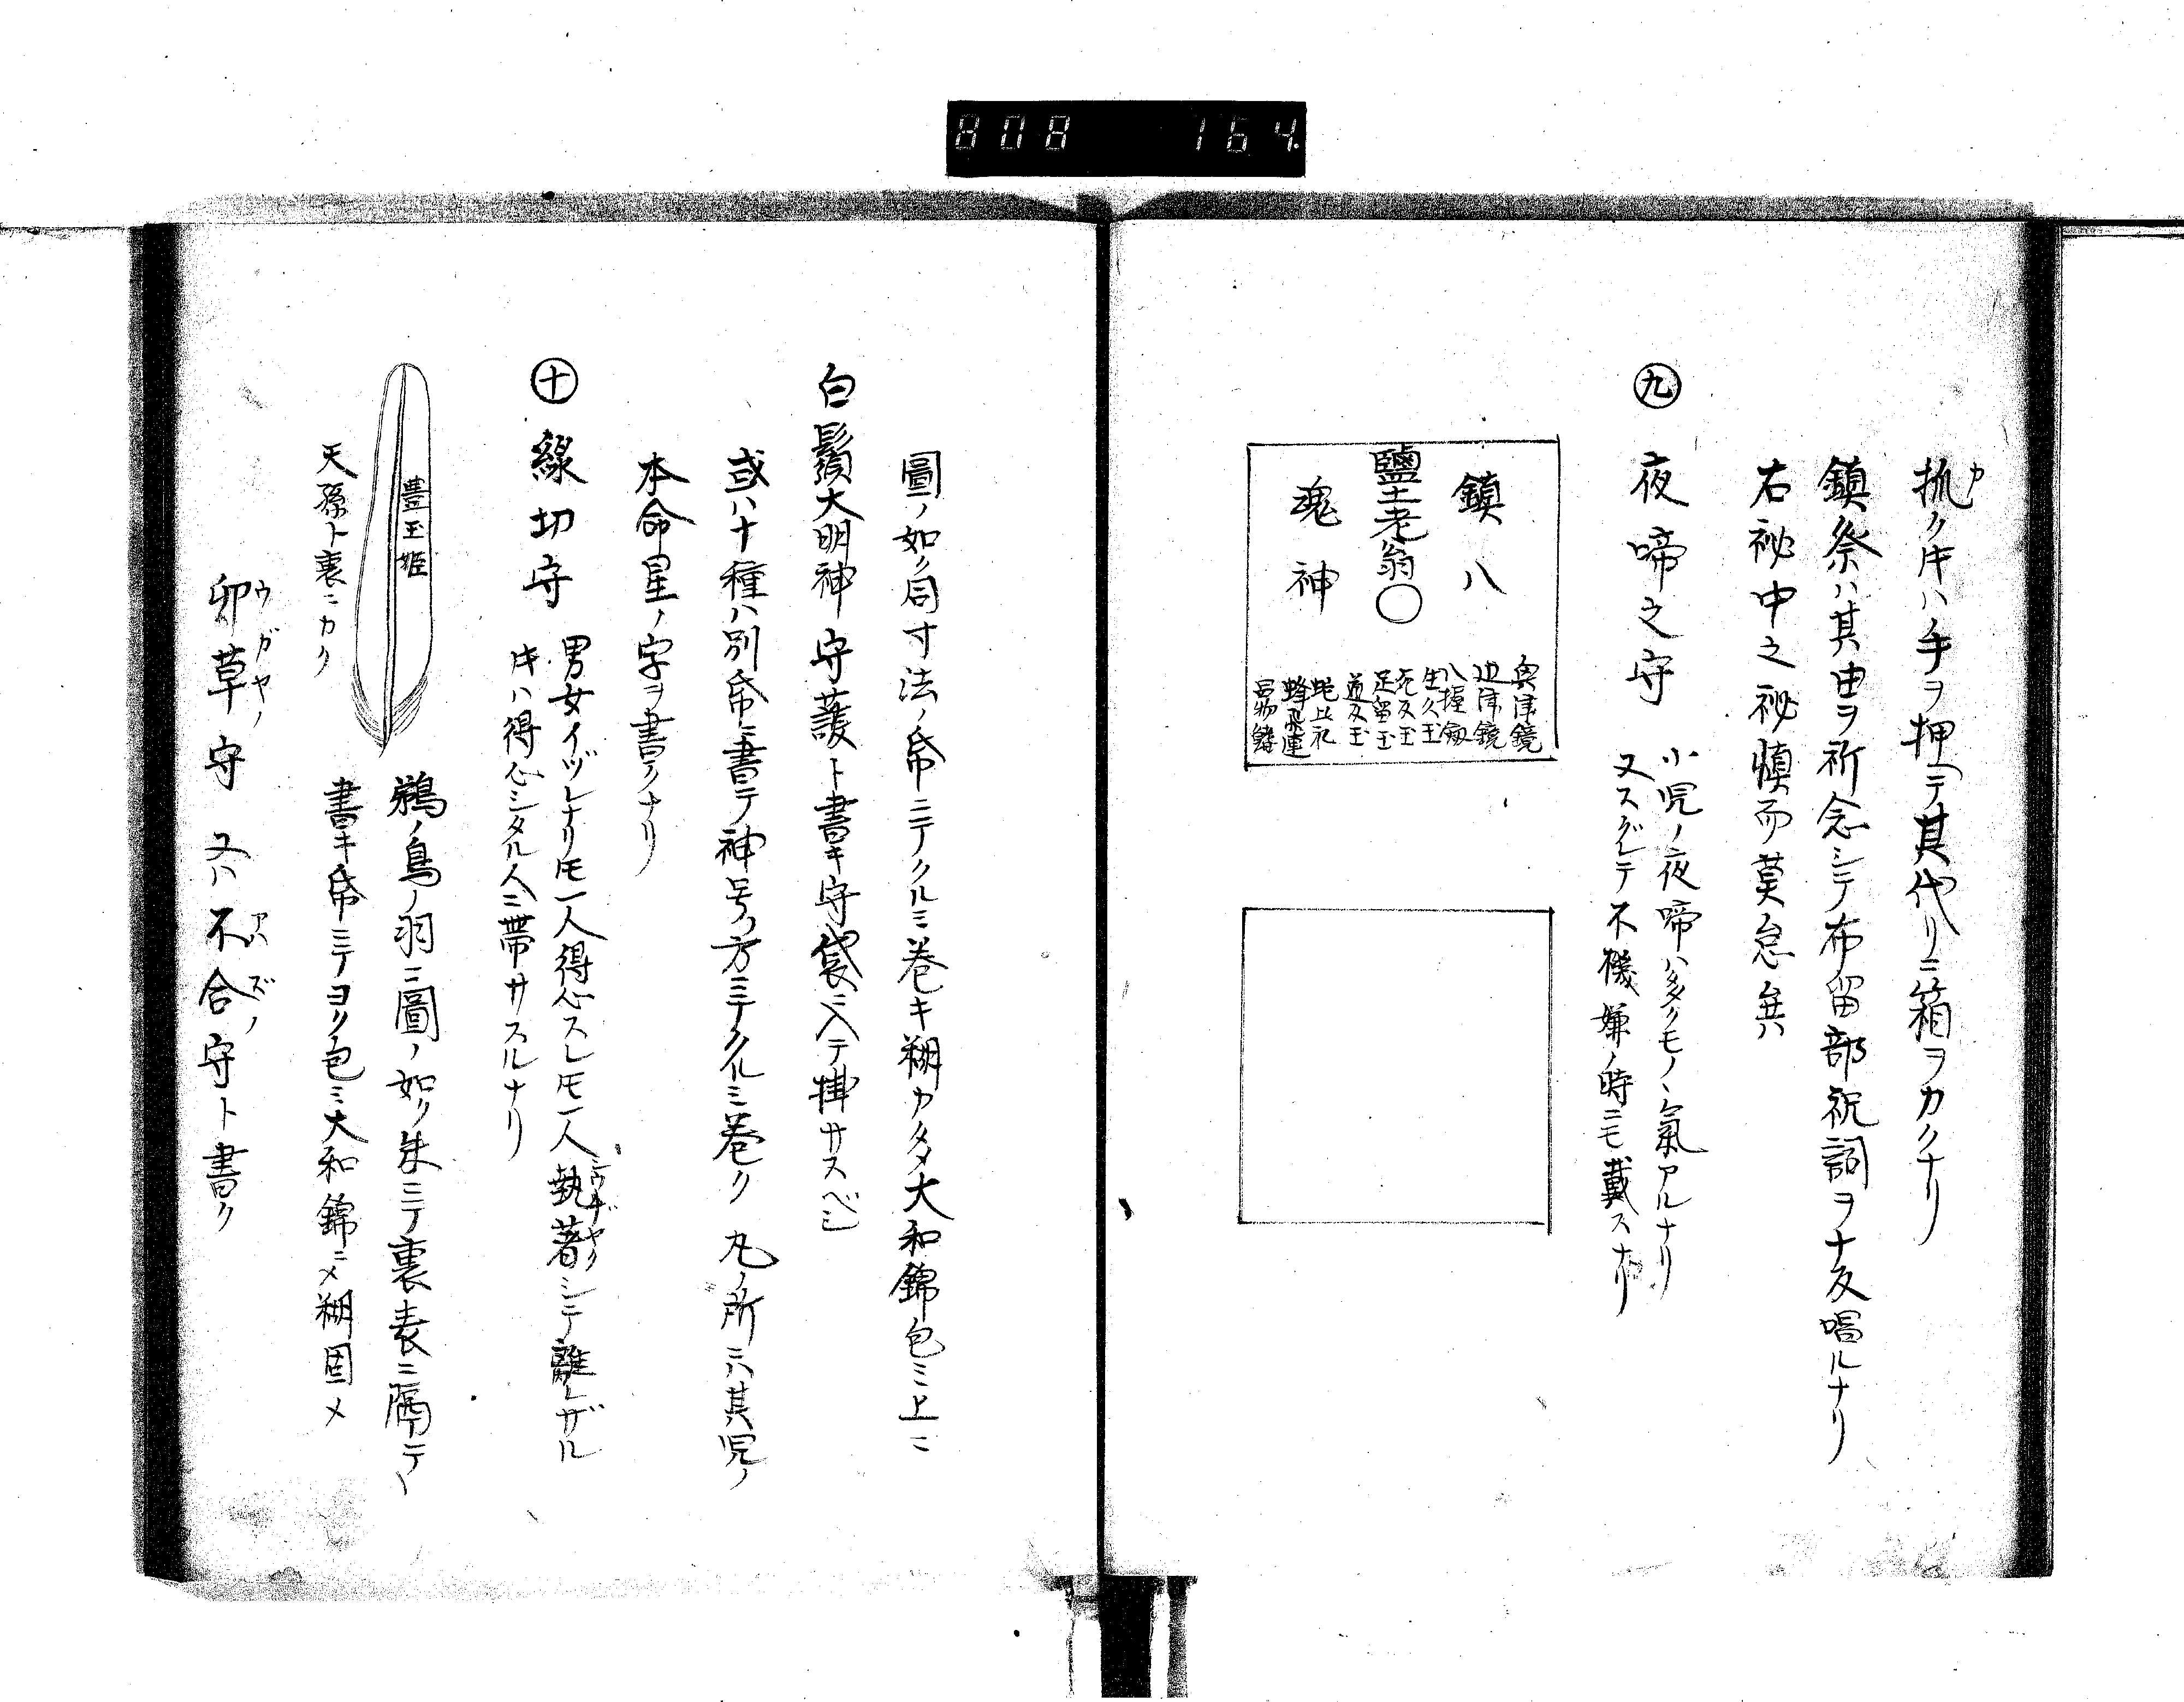 808 164
抓クキハ手ヲ押テ其代リニ箱ヲカクナリ
カ
鎮祭ハ其由ヲ祈念シテ布留部祝詞ヲ十反唱ルナリ
右祕中之祕慎而莫怠矣
九 夜啼之守
小児ノ夜啼ハ多クモノヽ氣アルナリ
又スグレテ不機嫌ノ時ニモ戴スナリ
鎮八
鹽土老翁〇
魂神
奥津鏡
辺津鏡
八握劔
生久玉
死反玉
足留玉
道反玉
蛇比礼
圖ノ如ク同寸法ノ帋ニテクルミ巻キ糊カタメ大和錦包ミ上ニ
白鬚大明神守護ト書キ守袋ニ入テ掛サスベシ
或ハ十種ハ別帋ニ書テ神号ノ方ニテクルミ巻ク 丸ノ所ニハ其児ノ
本命星ノ字ヲ書クナリ
十 線切守
男女イヅレナリトモ一人得心スレトモ一人執著シテ離レザル
シウヂヤク
トキハ得心シタル人ニ帯サスルナリ
豊玉姫
天孫ト裏ニカク
鵜ノ鳥ノ羽ニ圖ノ如ク朱ニテ裏表ニ隔テヽ
書キ帋ニテヨク包ミ大和錦ニメ糊固メ
卯草守 又ハ不合守ト書ク
ウガヤノ
アハズノ